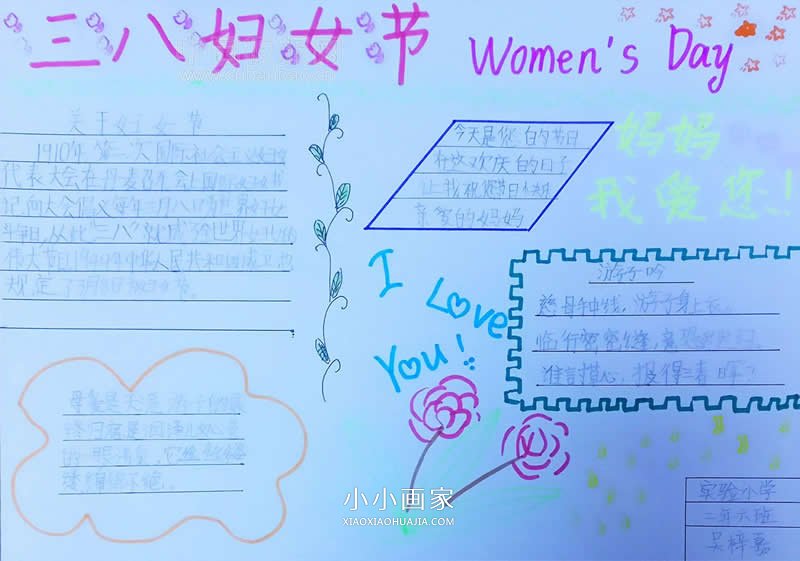 三八妇女节 Women's Day
关于妇女节
1910年第二次国际社会主义妇女
代表大会在丹麦
纪,向大会倡议每年三月八日为世界妇女
斗争日,从此"三八"就成了全世界妇女的
伟大节日1949年中华人民共和国成立
规定了3月8日为妇女节。
今天是您的节日
在这欢庆的日子
让我祝您节日快乐
亲爱的妈妈
妈妈
我爱您!
I Love
You!
游子吟
慈母手中线,游子身上衣。
临行密密缝,意恐迟迟归。
谁言寸草心,报得三春晖?
母爱是天涯游子的最
终归宿,是润泽儿女心灵
的一眼清泉,它
小小画家
XIAOXIAOHUAJIA.COM
实验小学
二年六班
吴梓嘉